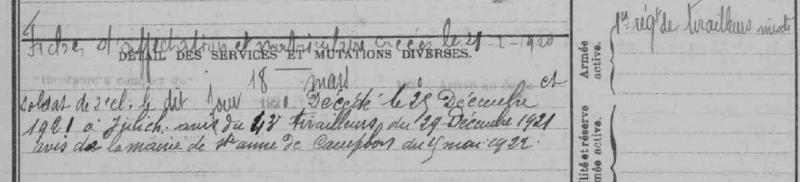 Fiches d'affectation et matriculaire créées le 21-2-1920
DÉTAIL DES SERVICES ET MUTATIONS DIVERSES.
18 mars 0 et
soldat de 2e cl. le dit jour 1920. Décédé le 25 Décembre
1921 à Jülich avis du 43e tirailleurs du 29 Décembre 1921
avis de la mairie de Ste anne de Campbon du 4 mai 1922.
1er régt de tirailleurs
Armée
active.